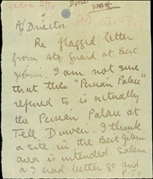 A/Director
Re flagged letter
from stg guard at Beit
Jibrin. I am not sure
that this "Persian Palace"
referred to is actually
the Persian Palace at
Tell Duweir. I think
a site in the Beit Jibrin
area is intended. Salem
or I had better go and